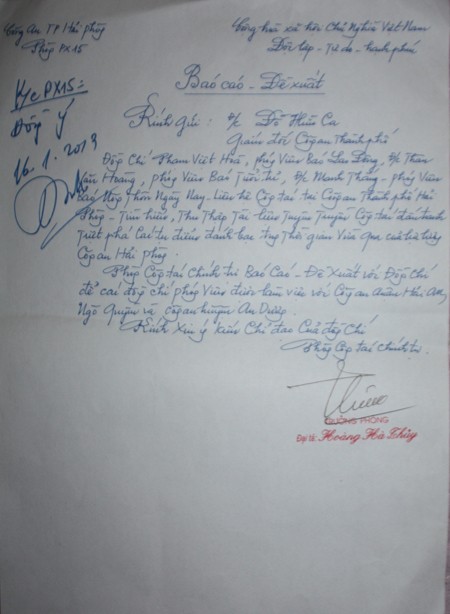 Công An TP Hải phòng
Phòng PX15
Cộng hòa xã hội Chủ Nghĩa Việt Nam
Độc lập - Tự do - hạnh phúc
Báo cáo - Đề xuất
K/g PX15:
Đồng ý
16.1.2013
Kính gửi: đ/c Đỗ Hữu Ca
Giám đốc Công an Thành phố
Đồng Chí Phạm Viết Hoà, phóng Viên Báo Lao Động, đ/c Thân
Văn Hoàng, phóng Viên Báo Tuổi trẻ, đ/c Mạnh Thắng - phóng Viên
báo Nông Thôn Ngày Nay - Liên hệ Công tác tại Công an Thành phố Hải
Phòng - Tìm hiểu, Thu Thập Tài liệu Tuyên Truyền Công tác đấu tranh
Triệt phá Các tụ điểm đánh bạc trong Thời gian Vừa Qua của lực lượng
Công an Hải phòng.
Phòng Công tác Chính trị Báo Cáo - Đề Xuất với Đồng Chí
để các đồng chí phóng Viên được làm việc với Công an Quận Hải An,
Ngô Quyền và Công an huyện An Dương.
Kính Xin ý kiến Chỉ đạo Của đồng Chí
Phòng Công tác Chính trị.
TRƯỞNG PHÒNG
Đại tá: Hoàng Hà Thủy